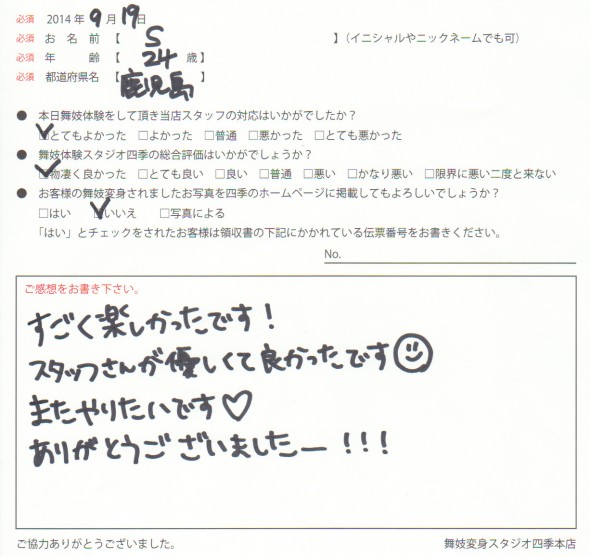 必須 2014年 9月 19日
必須 お名前【 S 】(イニシャルやニックネームでも可)
必須 年齢【 24 歳】
必須 都道府県名【 鹿児島 】
● 本日舞妓体験をして頂き当店スタッフの対応はいかがでしたか?
□とてもよかった □よかった □普通 □悪かった □とても悪かった
● 舞妓体験スタジオ四季の総合評価はいかがでしょうか?
□物凄く良かった □とても良い □良い □普通 □悪い □かなり悪い □限界に悪い二度と来ない
● お客様の舞妓変身されましたお写真を四季のホームページに掲載してもよろしいでしょうか?
□はい □いいえ □写真による
「はい」とチェックをされたお客様は領収書の下記にかかれている伝票番号をお書きください。
No.
ご感想をお書き下さい。
すごく楽しかったです!
スタッフさんが優しくて良かったです☺
またやりたいです♡
ありがとうございましたー!!!
ご協力ありがとうございました。 舞妓変身スタジオ四季本店